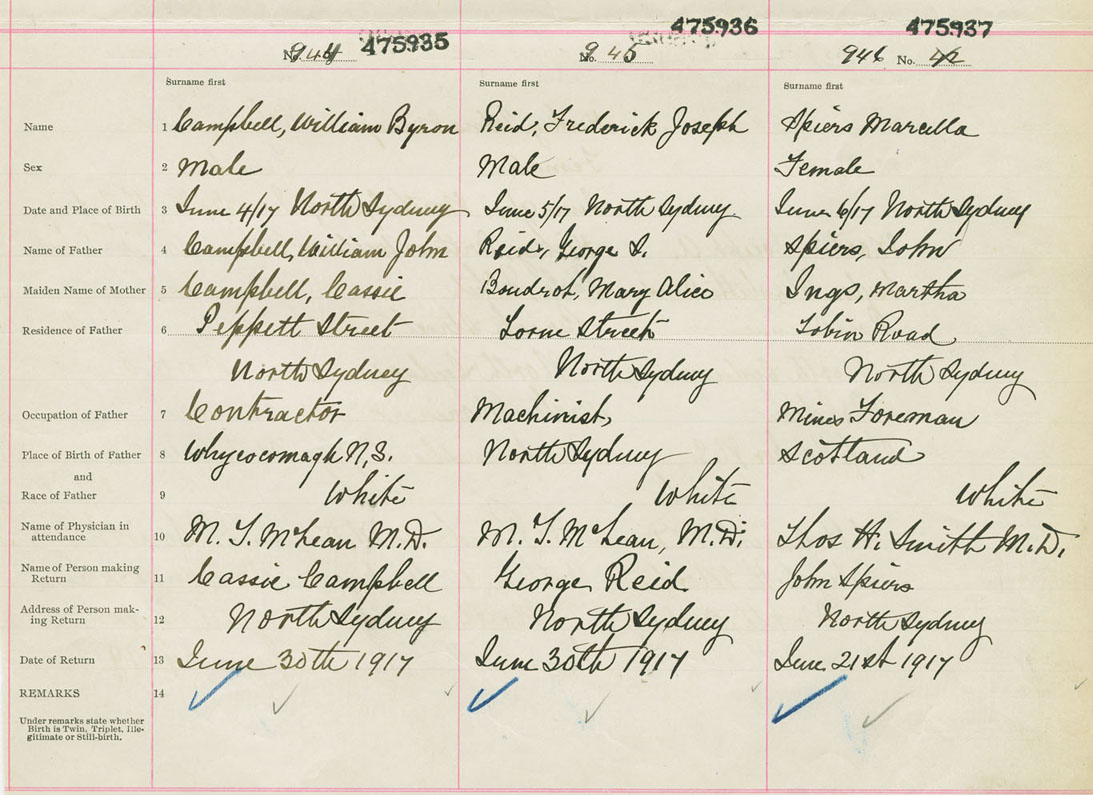 475935 475936 475937
No. 944 No. 945 946 No. 42
Surname first Surname first Surname first
Name 1 Campbell, William Byron Reid, Frederick Joseph Spiers Marcella
Sex 2 Male Male Female
Date and Place of Birth 3 June 4/17 North Sydney June 5/17 North Sydney June 6/17 North Sydney
Name of Father 4 Campbell, William John Reid, George S. Spiers, John
Maiden Name of Mother 5 Campbell, Cassie Boudrot, Mary Alice Ings, Martha
Residence of Father 6 Peppett Street Lorne Street Tobin Road
North Sydney North Sydney North Sydney
Occupation of Father 7 Contractor Machinist, Mines Foreman
Place of Birth of Father 8 Whycocomagh N.S. North Sydney Scotland
and
Race of Father 9 White White White
Name of Physician in
attendance 10 M. T. McLean M.D. M. T. McLean, M.D. Thos H. Smith M.D.
Name of Person making
Return 11 Cassie Campbell George Reid John Spiers
Address of Person mak-
ing Return 12 North Sydney North Sydney North Sydney
Date of Return 13 June 30th 1917 June 30th 1917 June 21st 1917
REMARKS 14
Under remarks state whether
Birth is Twin, Triplet, Ille-
gitimate or Still-birth.